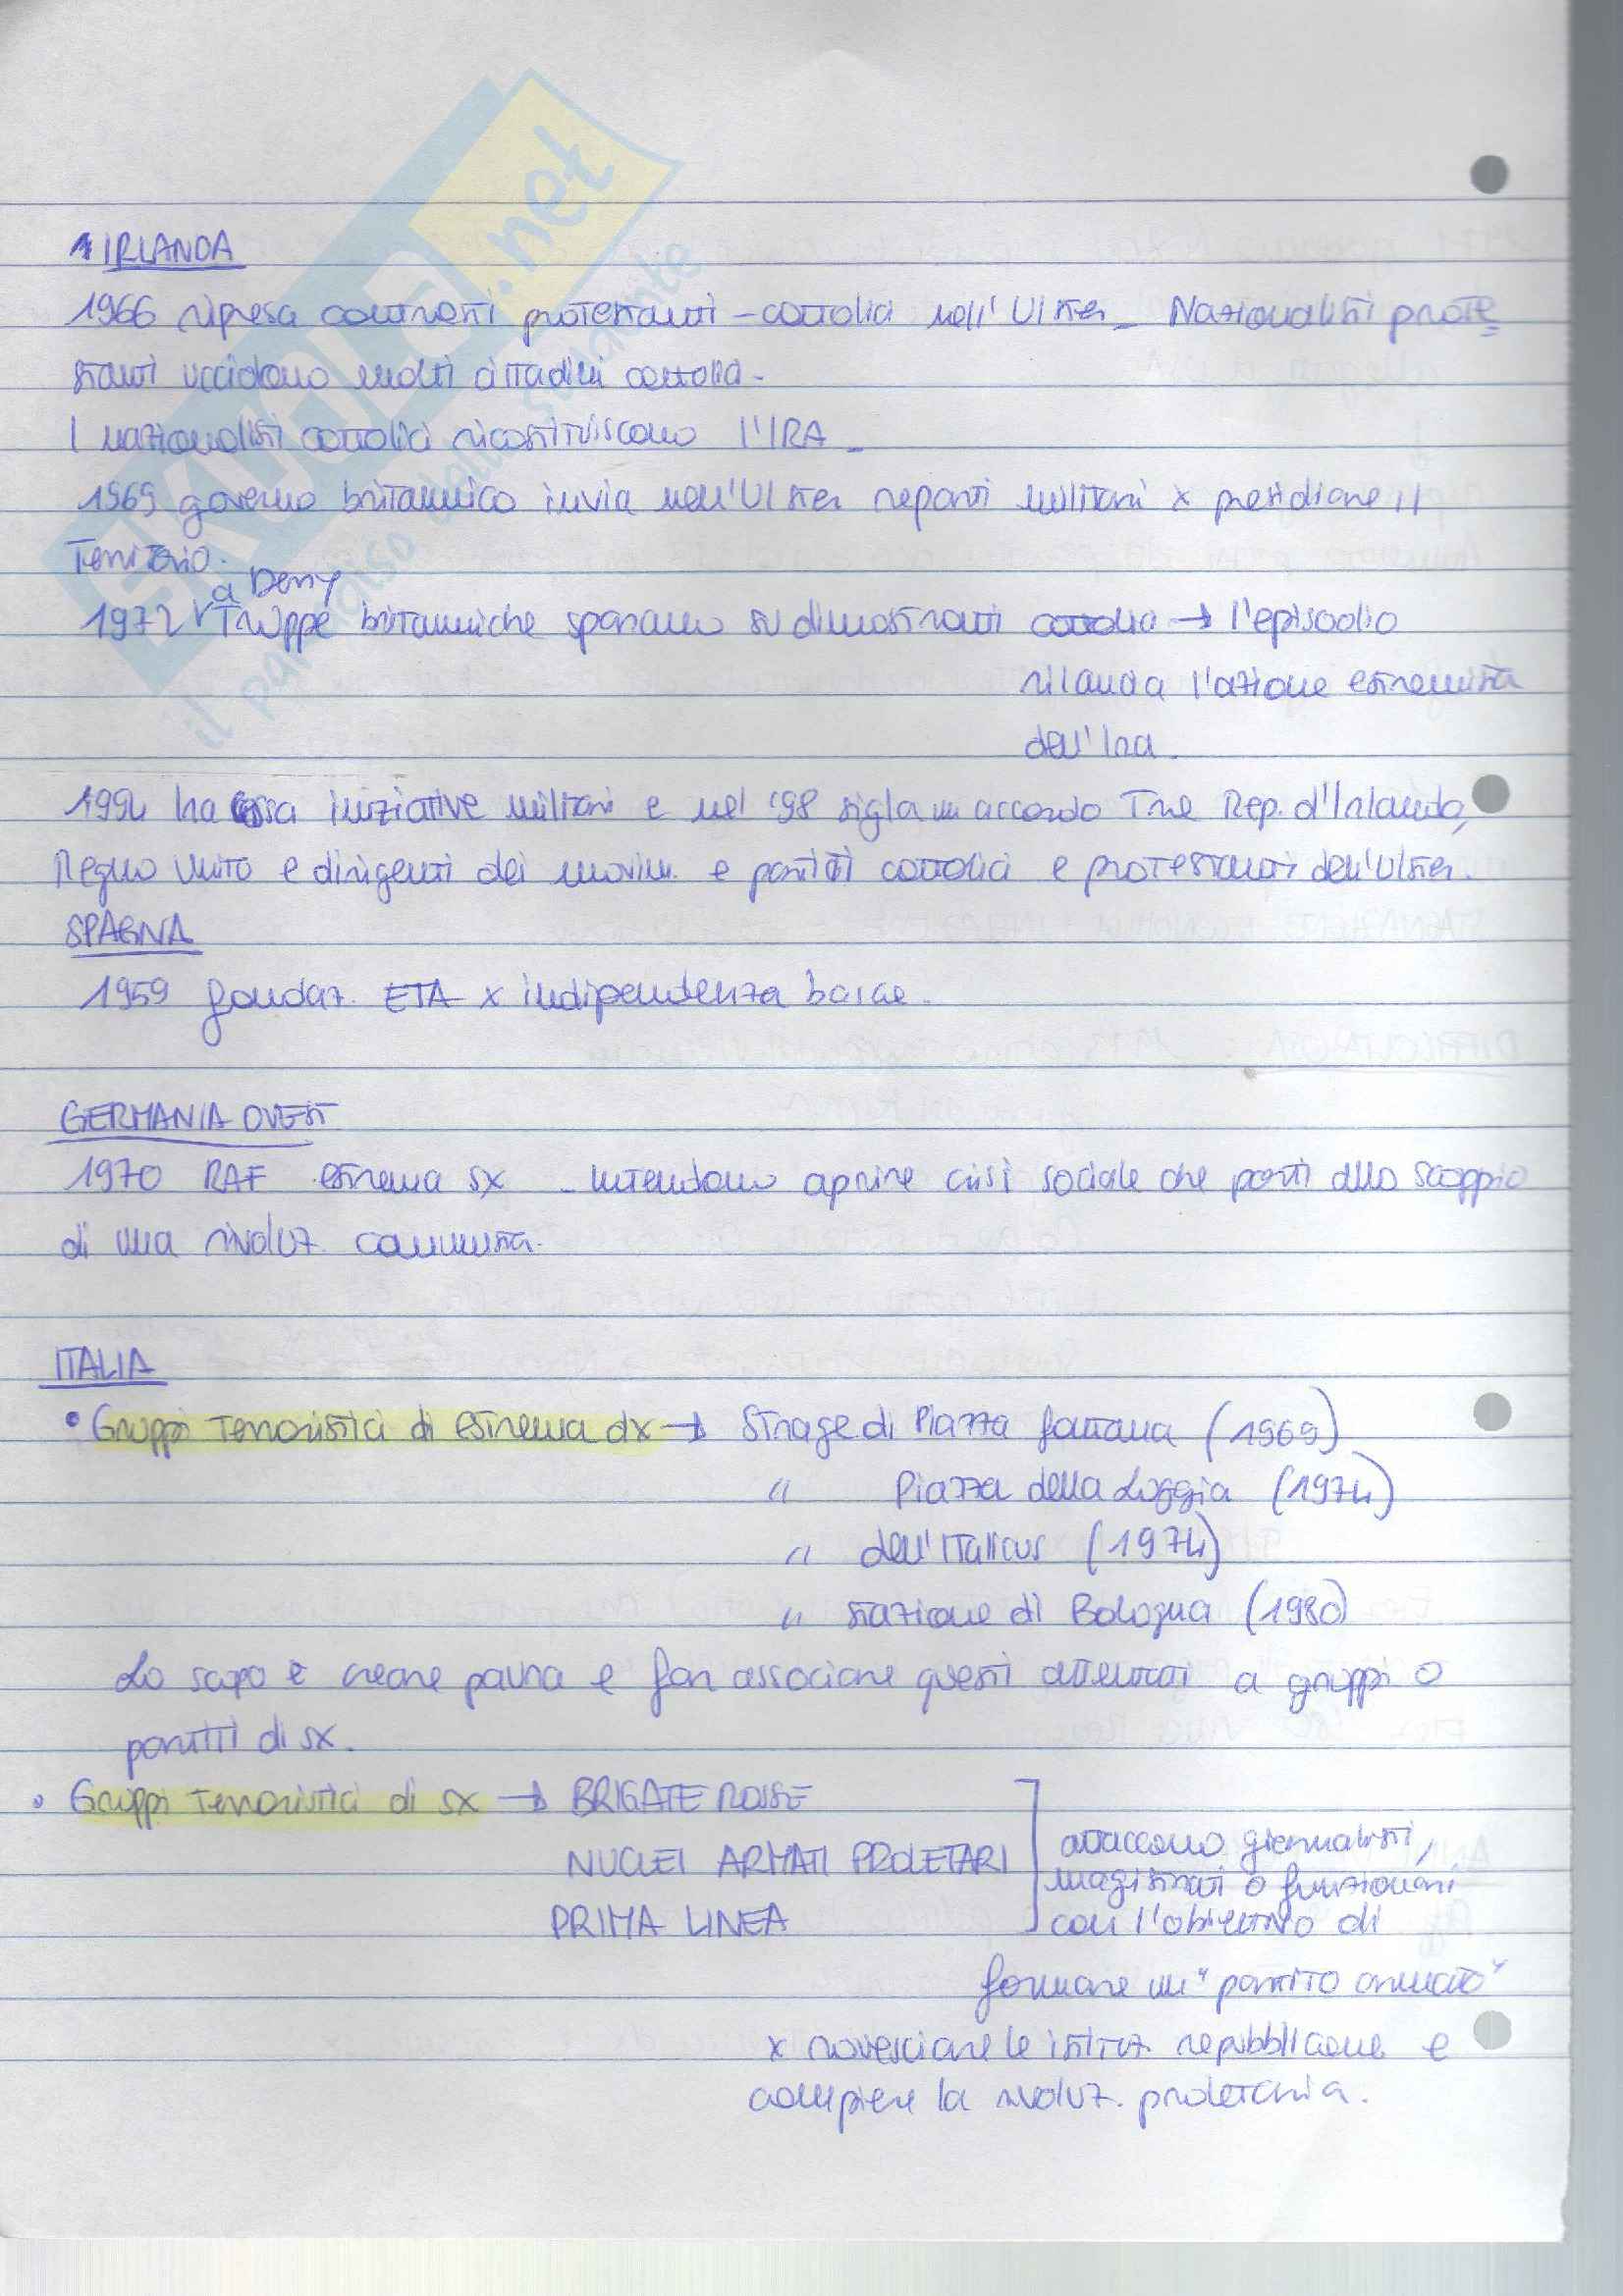 IRLANDA
1966 ripresa contrasti protestanti - cattolici nell'Ulster_ Nazionalisti prote
stanti uccidono molti cittadini cattolici-
I nazionalisti cattolici ricostituiscono l'IRA_
1969 governo britannico invia nell'Ulster reparti militari x presidiare il
Territorio.
a Derry
1972 Truppe britanniche sparano su dimostranti cattolici → l'episodio
rilancia l'azione estremista
dell'Ira.
1994 Ira cessa iniziative militari e nel '98 sigla un accordo Tra Rep. d'Irlanda,
Regno Unito e dirigenti dei movim. e partiti cattolici e protestanti dell'Ulster.
SPAGNA
1959 fondaz. ETA x indipendenza basca.
GERMANIA OVEST
1970 RAF estrema sx _ Intendono aprire crisi sociale che porti allo scoppio
di una rivoluz. comunista.
ITALIA
• Gruppi Terroristici di estrema dx → Strage di Piazza fontana (1969)
" Piazza della Loggia (1974)
" dell'Italicus (1974)
" stazione di Bologna (1980)
Lo scopo è creare paura e far associare questi attentati a gruppi o
partiti di sx.
• Gruppi Terroristici di sx → BRIGATE ROSSE
NUCLEI ARMATI PROLETARI
PRIMA LINEA
attaccano giornalisti,
magistrati o funzionari
con l'obiettivo di
formare un "partito armato"
x rovesciare le istituz. repubblicane e
compiere la rivoluz. proletaria.
SKUOLA.net
il paradiso dello studente